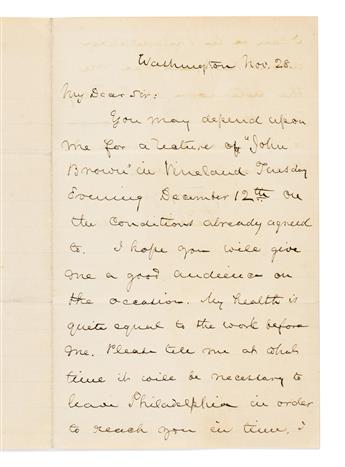 Washington Nov. 28.
My Dear Sir:
You may depend upon
me for a lecture of "John
Brown" in Vineland Tuesday
Evening December 12th on
the conditions already agreed
to. I hope you will give
me a good audience on
the occasion. My health is
quite equal to the work before
me. Please tell me at what
time it will be necessary to
leave Philadelphia in order
to reach you in time. I